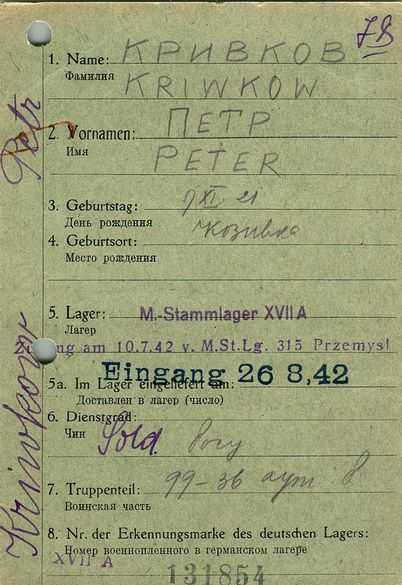 78
1. Name: КРИВКОВ
Фамилия
KRIWKOW
2. Vornamen: ПЕТР
Имя
PETER
3. Geburtstag: 7 XI 21
День рождения
4. Geburtsort: Козивка
Место рождения
5. Lager: M.-Stammlager XVII A
Лагерь
am 10.7.42 v. M.St.Lg. 315 Przemysl
Eingang 26 8,42
5a. Im Lager eingeliefert am:
Доставлен в лагерь (число)
6. Dienstgrad: Sold.
Чин
99-36
7. Truppenteil:
Воинская часть
8. Nr. der Erkennungsmarke des deutschen Lagers:
Номер военнопленного в германском лагере
XVII A
131854
Kriwkow Petr